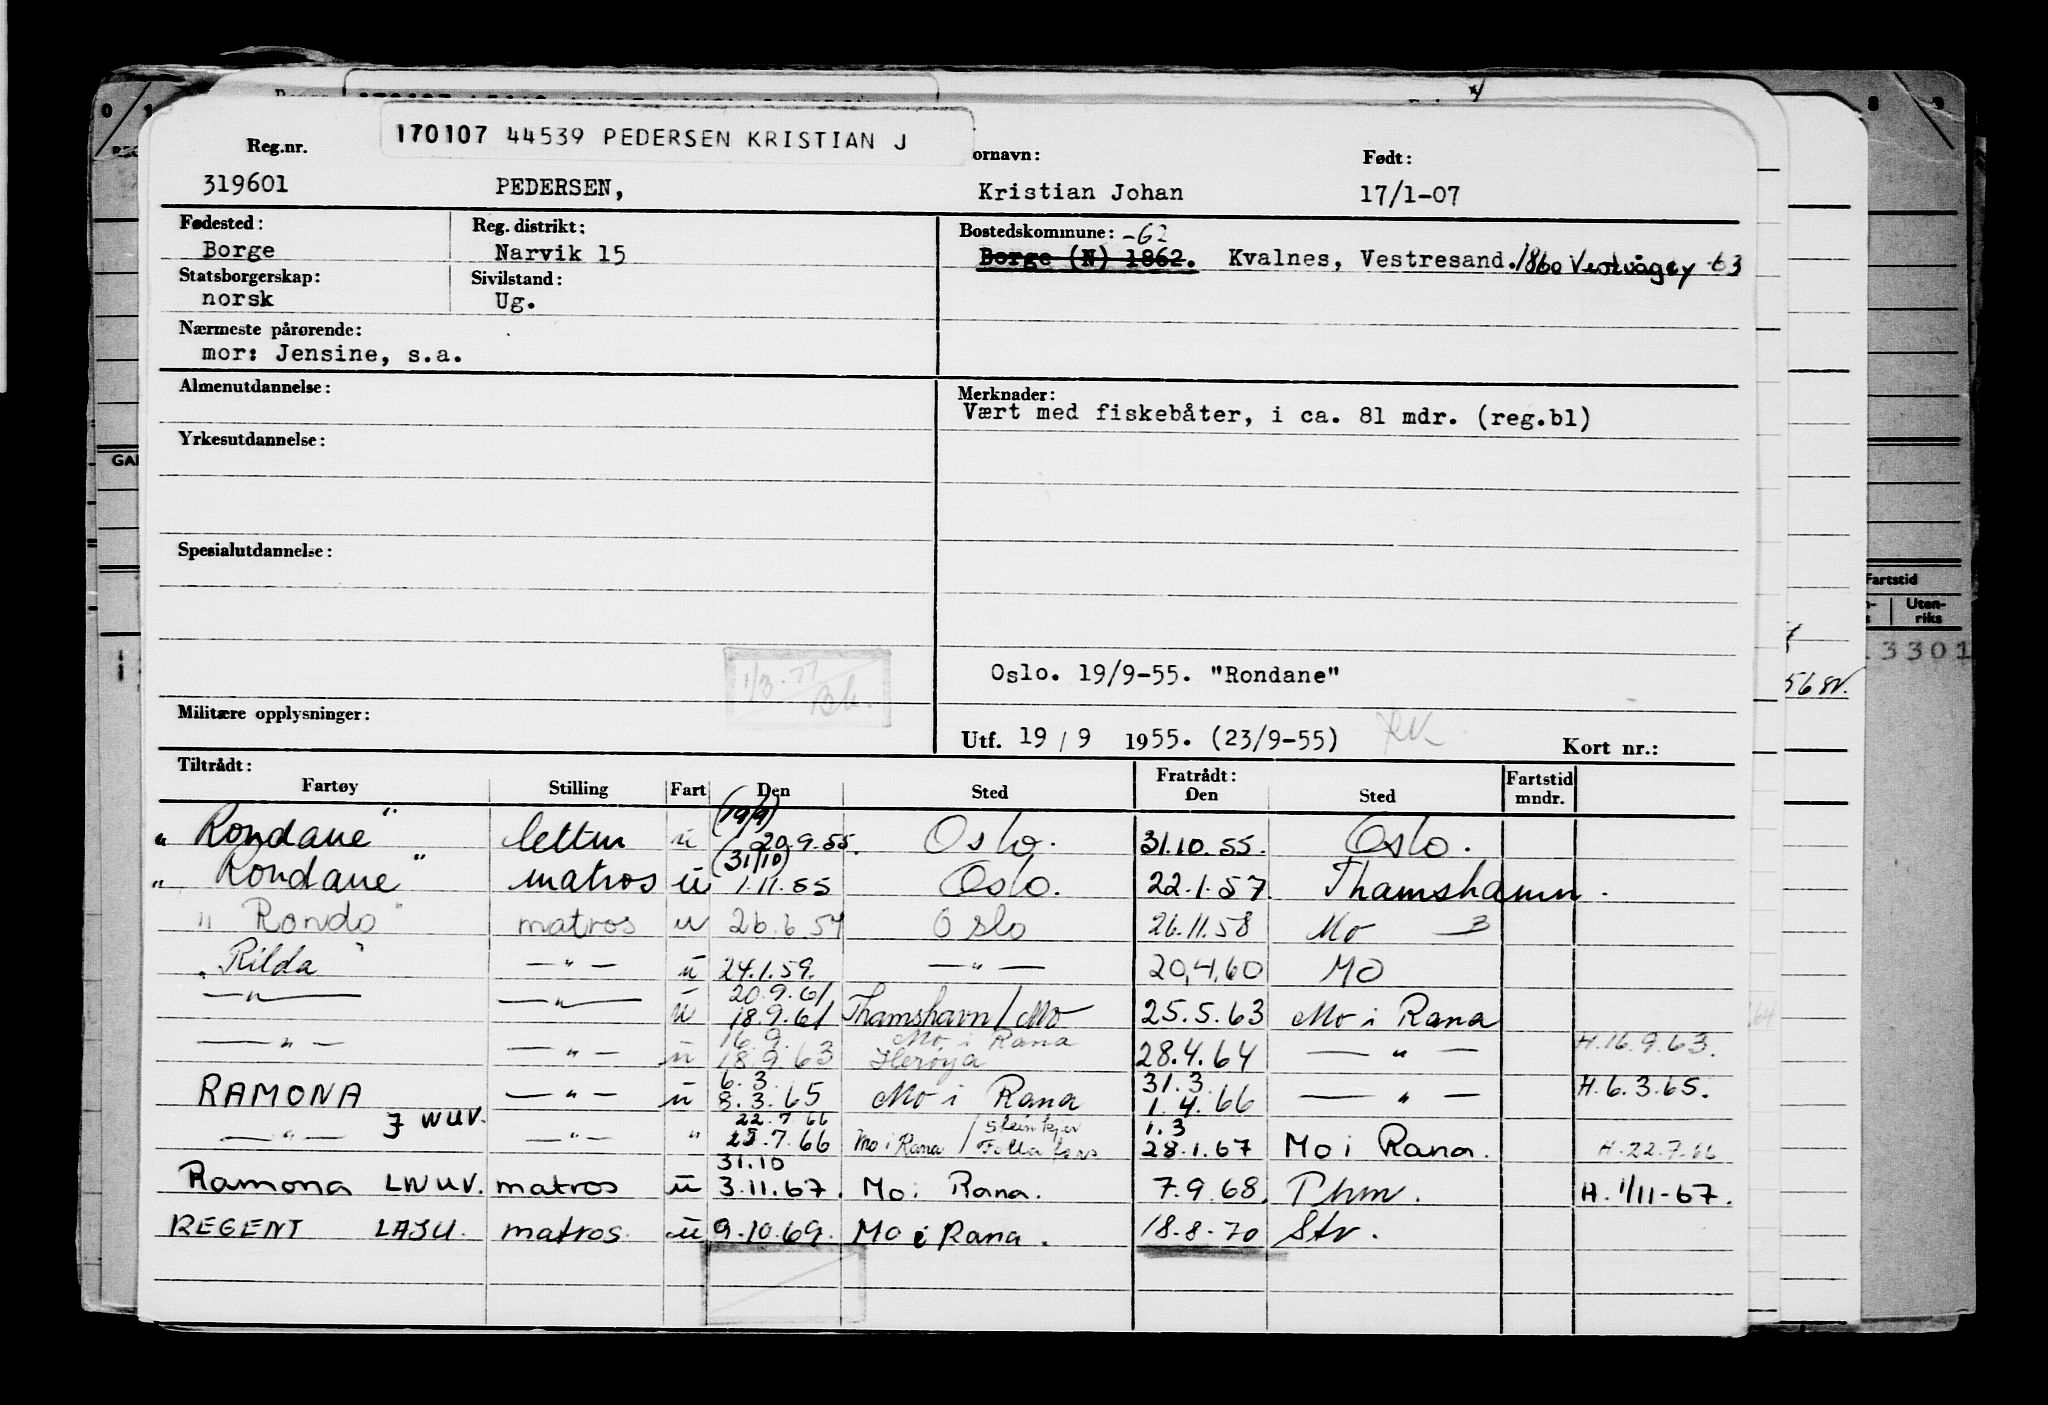 170107 44539 PEDERSEN KRISTIAN J
Reg.nr. ornavn: Født:
319601 PEDERSEN, Kristian Johan 17/1-07
Fødested: Reg. distrikt: Bostedskommune: -62
Borge Narvik 15 Borge (N) 1862. Kvalnes, Vestresand. 1860 Vestvågøy -63
Statsborgerskap: Sivilstand:
norsk Ug.
Nærmeste pårørende:
mor: Jensine, s.a.
Almenutdannelse: Merknader:
Vært med fiskebåter, i ca. 81 mdr. (reg.bl)
Yrkesutdannelse:
Spesialutdannelse:
1/3-77
Oslo. 19/9-55. "Rondane"
Militære opplysninger:
Utf. 19 / 9 1955. (23/9-55) Kort nr.:
Tiltrådt: Fratrådt: Fartstid
Fartøy Stilling Fart Den Sted Den Sted mndr.
(19/9)
"Rondane" lettm u 20.9.55. Oslo. 31.10.55. Oslo.
(31/10)
"Rondane" matros u 1.11.55 Oslo. 22.1.57. Thamshamn.
"Rondo" matros u 26.6.57 Oslo 26.11.58 Mo 3
"Rilda" —"— u 24.1.59. —"— 20.4.60 Mo
20.9.61
—"— —"— u 18.9.61 Thamshavn/Mo 25.5.63 Mo i Rana
16.9. Mo i Rana
—"— —"— u 18.9.63 Herøya 28.4.64 —"— H.16.9.63.
6.3. 31.3
RAMONA —"— u 8.3.65 Mo i Rana 1.4.66 —"— H.6.3.65.
J WUV. 22.7.66 Steinkjer 1.3
—"— —"— " 25.7.66 Mo i Rana / Folla foss 28.1.67 Mo i Rana. H.22.7.66
31.10
Ramona LNUV. matros u 3.11.67. Mo i Rana. 7.9.68. Phm. H.1/11-67.
REGENT LAJU. matros u 9.10.69. Mo i Rana. 18.8.70 Str.
Fartstid
Uten-
riks
3301